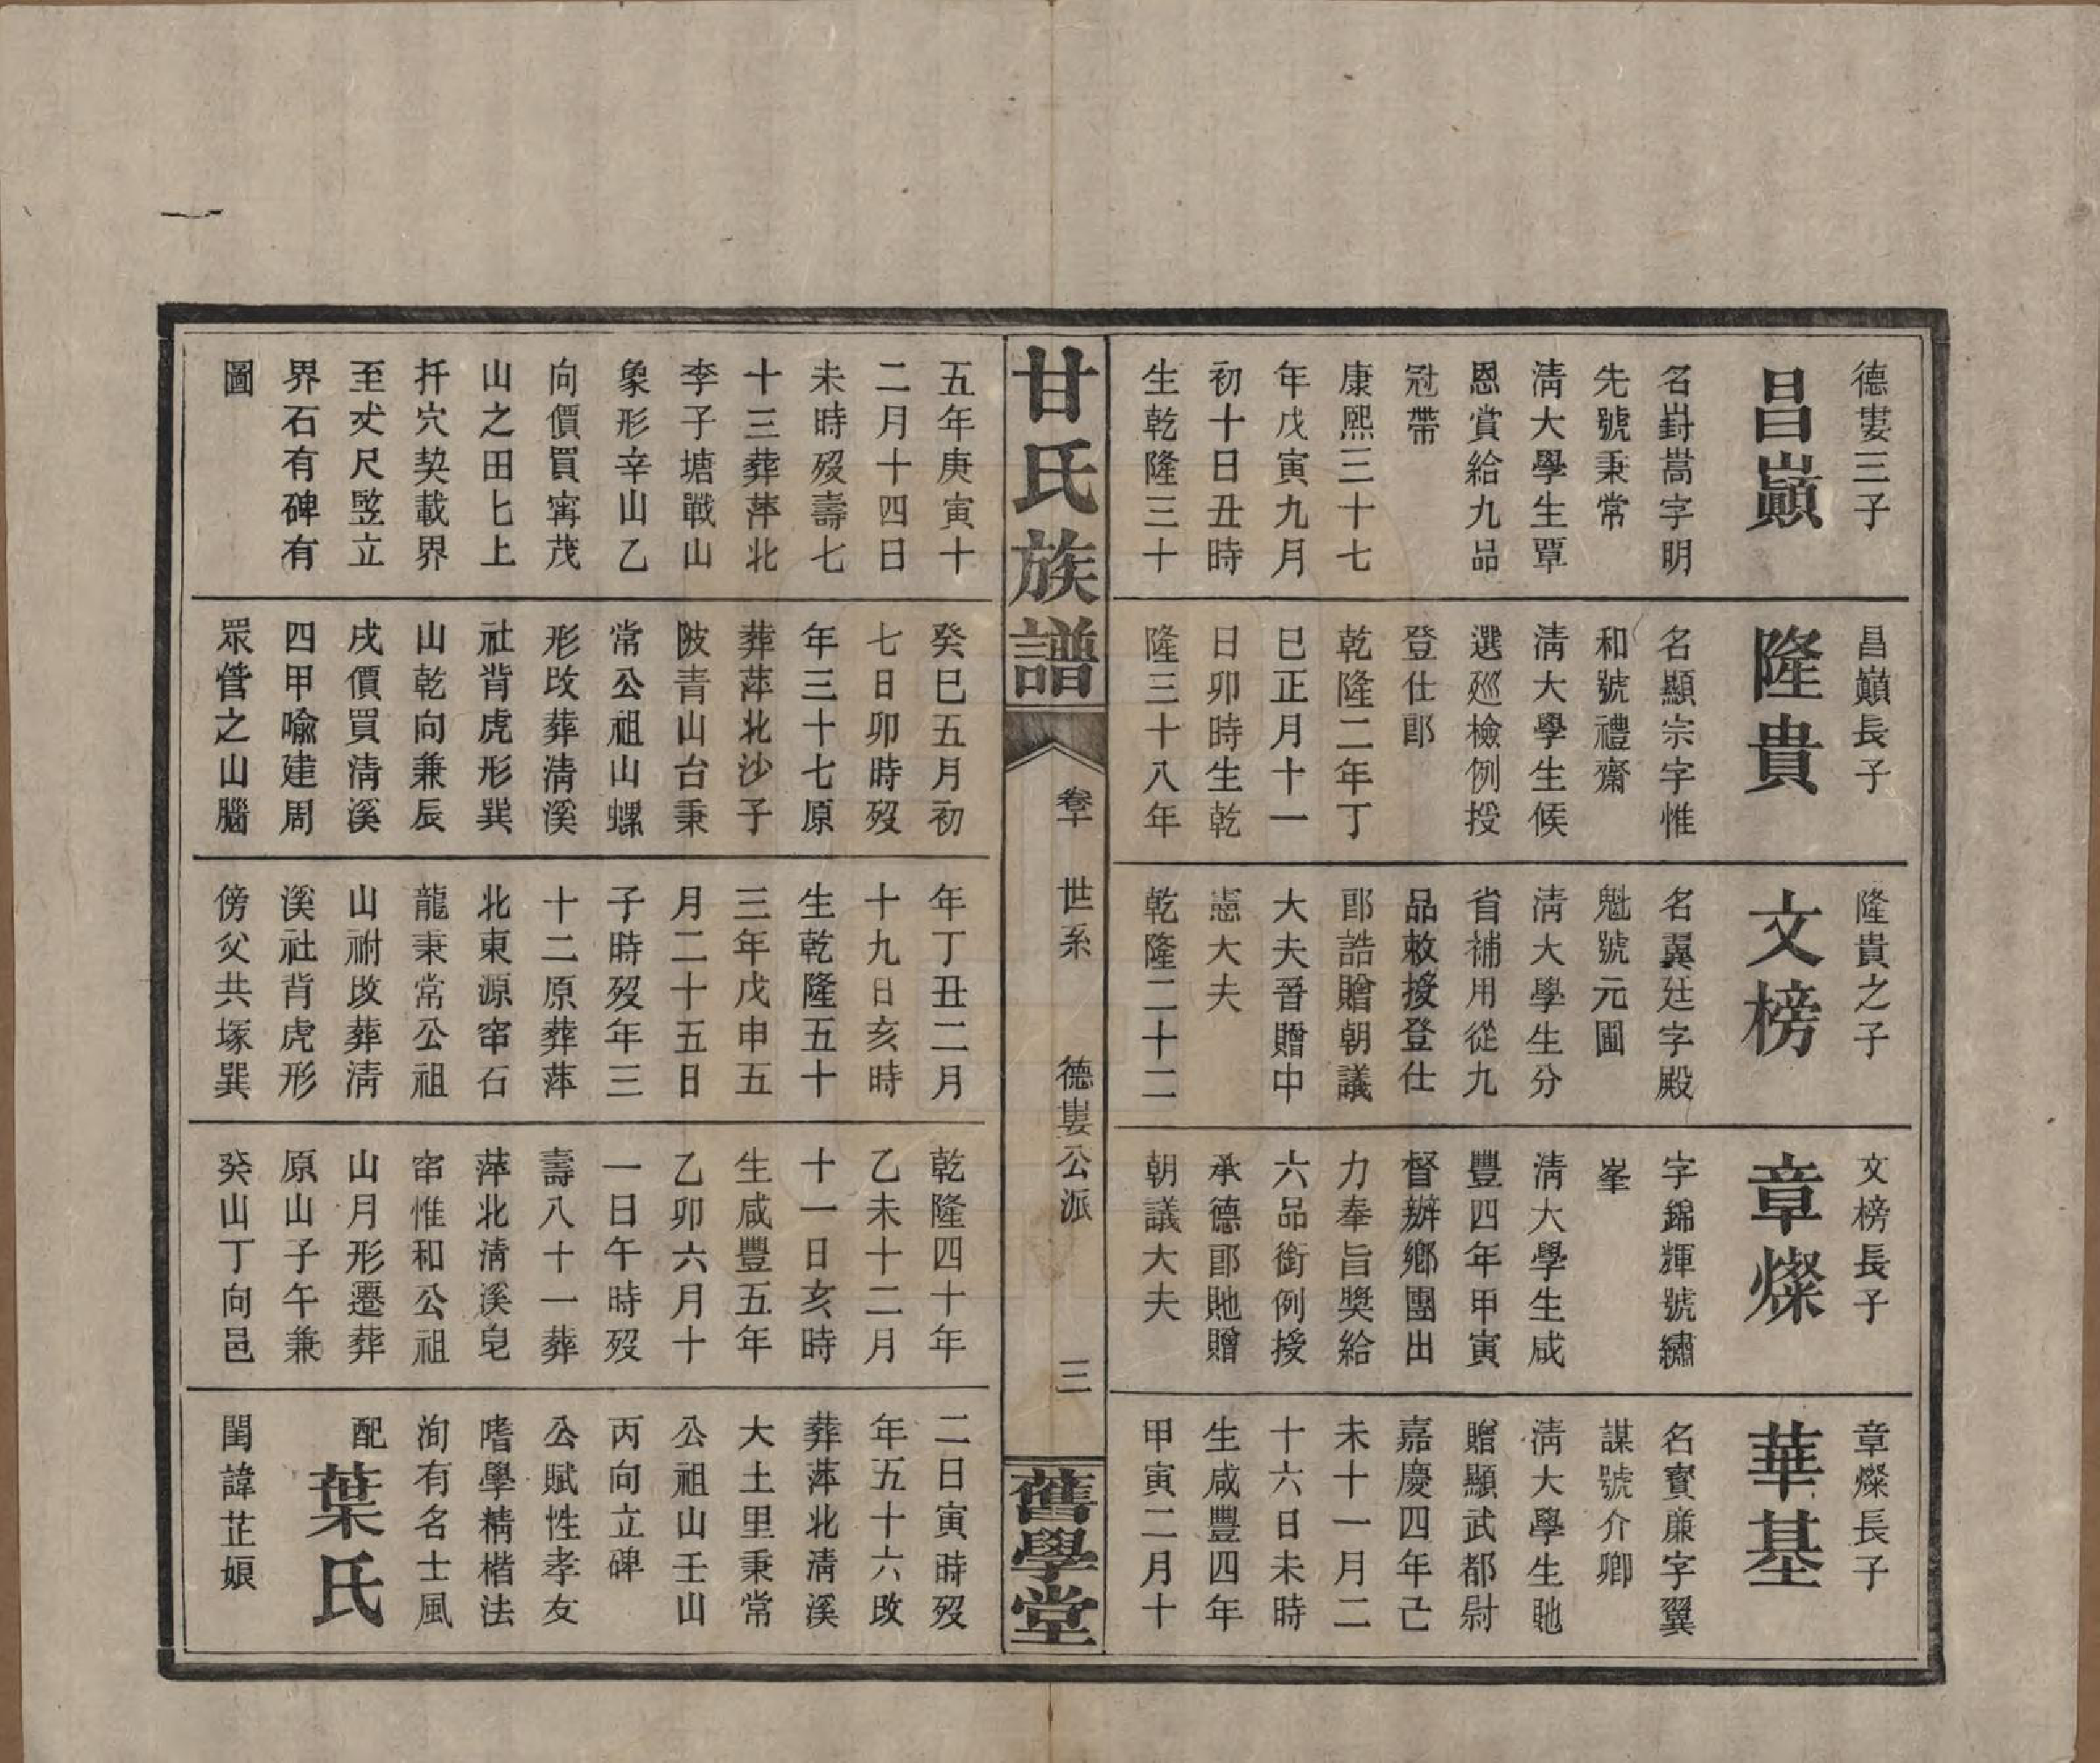 德嶁三子
昌巔
名崶嵩字明
先號秉常
淸大學生覃
恩賞給九品
冠帶
康熙三十七
年戊寅九月
初十日丑時
生乾隆三十
昌巔長子
隆貴
名顯宗字惟
和號禮齋
淸大學生候
選廵檢例授
登仕郎
乾隆二年丁
巳正月十一
日卯時生乾
隆三十八年
隆貴之子
文榜
名翼廷字殿
魁號元圃
淸大學生分
省補用從九
品敕授登仕
郎誥贈朝議
大夫晉贈中
憲大夫
乾隆二十二
文榜長子
章燦
字錦輝號繡
峯
淸大學生咸
豐四年甲寅
督辦鄉團出
力奉旨奬給
六品銜例授
承德郎貤贈
朝議大夫
章燦長子
華基
名寶廉字翼
謀號介卿
淸大學生貤
贈顯武都尉
嘉慶四年己
未十一月二
十六日未時
生咸豐四年
甲寅二月十
甘氏族譜
卷十 世系 德嶁公派 三
舊學堂
五年庚寅十
二月十四日
未時歿壽七
十三葬萍北
李子塘戰山
象形辛山乙
向價買甯茂
山之田匕上
扦穴契載界
至丈尺竪立
界石有碑有
圖
癸巳五月初
七日卯時歿
年三十七原
葬萍北沙子
陂青山台秉
常公祖山螺
形改葬淸溪
社背虎形巽
山乾向兼辰
戌價買淸溪
四甲喻建周
眾營之山腦
年丁丑二月
十九日亥時
生乾隆五十
三年戊申五
月二十五日
子時歿年三
十二原葬萍
北東源窋石
龍秉常公祖
山祔改葬淸
溪社背虎形
傍父共塚巽
乾隆四十年
乙未十二月
十一日亥時
生咸豐五年
乙卯六月十
一日午時歿
壽八十一葬
萍北淸溪皂
窋惟和公祖
山月形遷葬
原山子午兼
癸山丁向邑
二日寅時歿
年五十六改
葬萍北淸溪
大土里秉常
公祖山壬山
丙向立碑
公賦性孝友
嗜學精楷法
洵有名士風
配
葉氏
閨諱芷娘